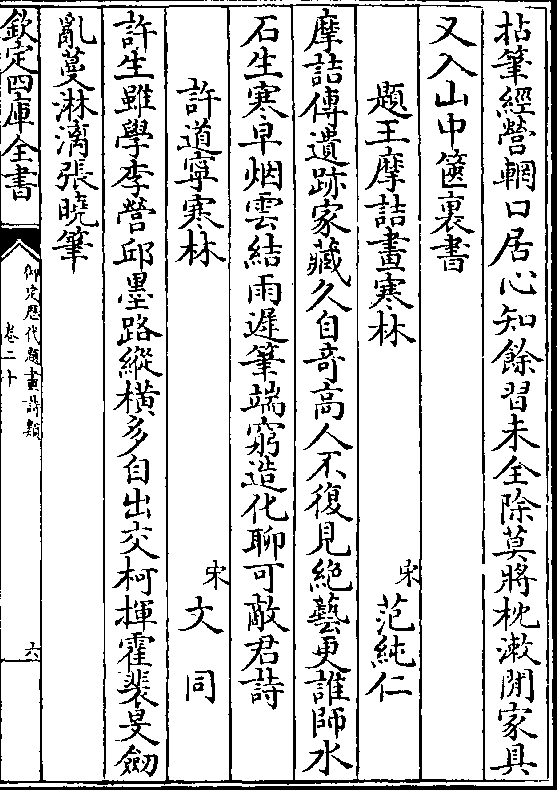 拈筆經營輞口居心知餘習未全除莫將枕漱閒家具
又入山中篋裏書
題王摩詰畫寒林
宋 范純仁
摩詰傳遺跡家藏久自奇高人不復見絶藝更誰師水
石生寒早烟雲結雨遲筆端窮造化聊可敵君詩
許道寧寒林
宋 文同
許生雖學李營邱墨路縱橫多自出交柯揮霍裴旻劒
亂蔓淋漓張曉筆
欽定四庫全書
御定歴代題畫詩類
卷二十
六